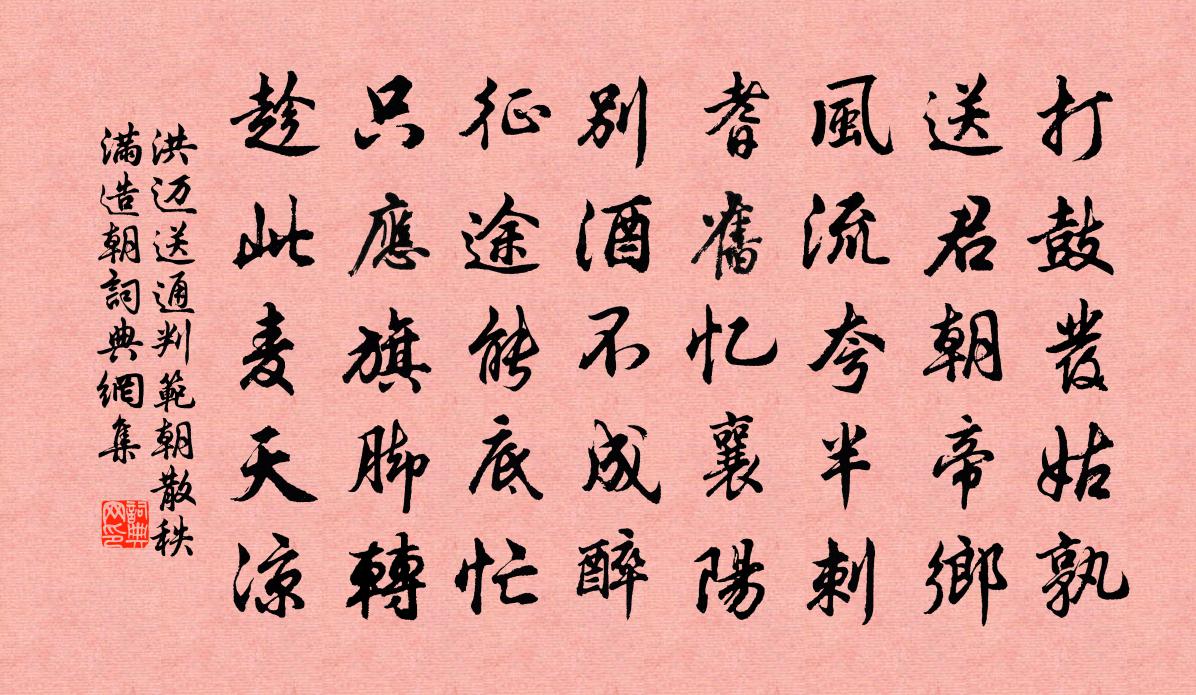 打鼓發姑孰
送君朝帝鄉
風流夸半刺
耆舊忆襄陽
別酒不成醉
征途能底忙
只應旗脚轉
趁此麦天涼
洪迈送通判範朝散秩
滿造朝詞典網集
詞典网印